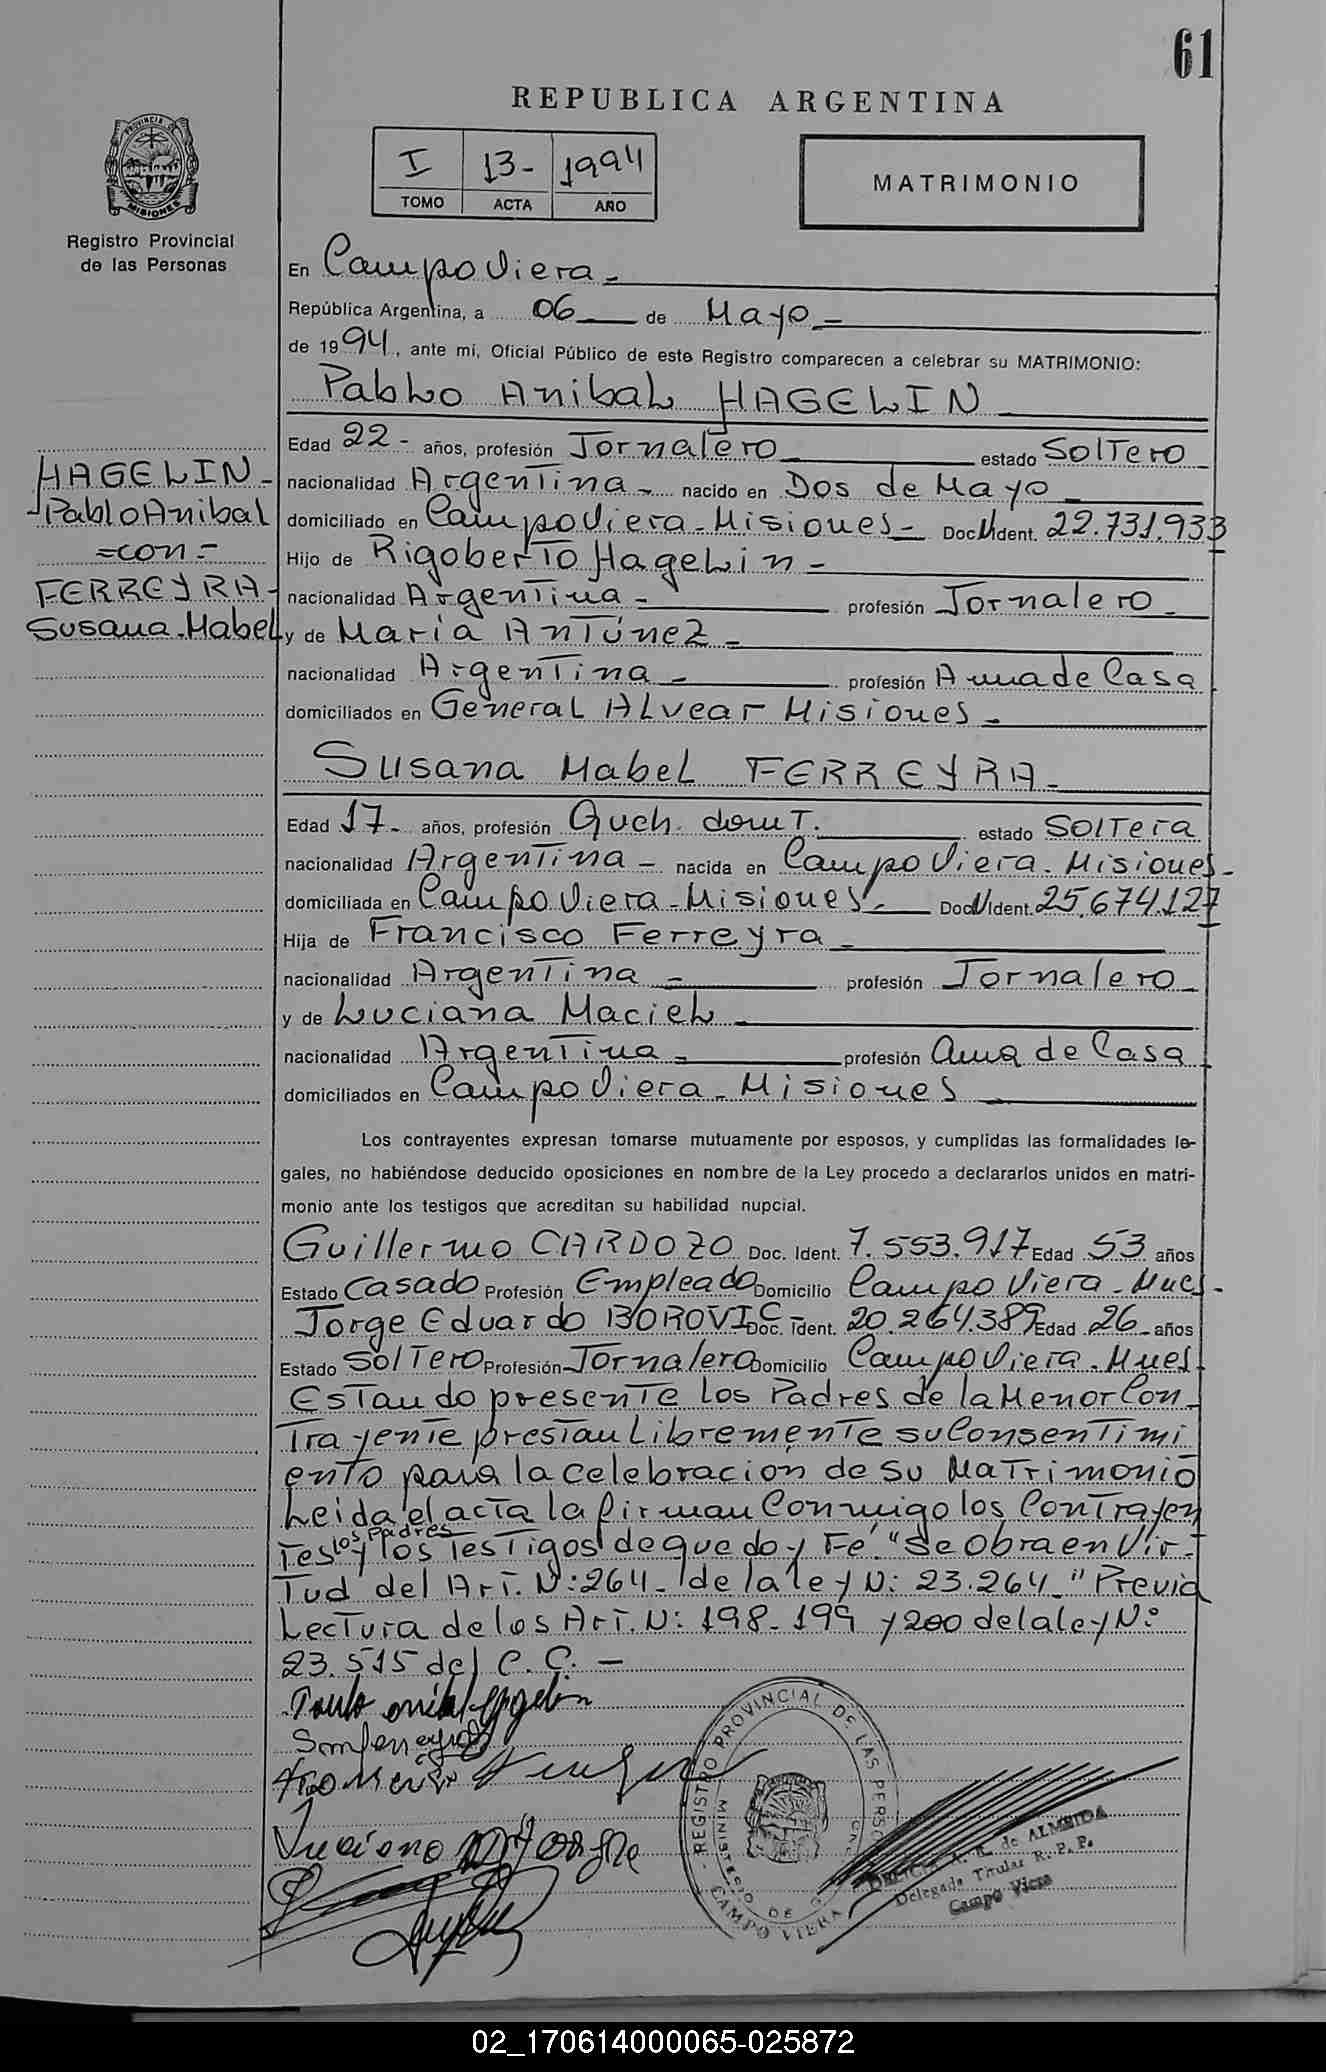 61
REPUBLICA ARGENTINA
I 13- 1994
TOMO ACTA AÑO
MATRIMONIO
PROVINCIA DE
MISIONES
Registro Provincial
de las Personas
En Campo Viera
República Argentina, a 06 de Mayo
de 1994, ante mí, Oficial Público de este Registro comparecen a celebrar su MATRIMONIO:
Pablo Anibal HAGELIN
Edad 22- años, profesión Jornalero estado Soltero
nacionalidad Argentina nacido en Dos de Mayo
domiciliado en Campo Viera - Misiones Doc. Ident. 22.731.933
Hijo de Rigoberto Hagelin
nacionalidad Argentina profesión Jornalero
y de María Antúnez
nacionalidad Argentina profesión Ama de Casa
domiciliados en General Alvear Misiones
HAGELIN
Pablo Anibal
=con=
FERREYRA
Susana Mabel
Susana Mabel FERREYRA
Edad 17- años, profesión Queh. domt. estado Soltera
nacionalidad Argentina nacida en Campo Viera. Misiones
domiciliada en Campo Viera - Misiones Doc. Ident. 25.674.127
Hija de Francisco Ferreyra
nacionalidad Argentina profesión Jornalero
y de Luciana Maciel
nacionalidad Argentina profesión Ama de Casa
domiciliados en Campo Viera - Misiones
Los contrayentes expresan tomarse mutuamente por esposos, y cumplidas las formalidades le-
gales, no habiéndose deducido oposiciones en nombre de la Ley procedo a declararlos unidos en matri-
monio ante los testigos que acreditan su habilidad nupcial.
Guillermo CARDOZO Doc. Ident. 7.553.917 Edad 53 años
Estado Casado Profesión Empleado Domicilio Campo Viera - Mnes.
Jorge Eduardo BOROVIC Doc. Ident. 20.264.389 Edad 26 años
Estado Soltero Profesión Jornalero Domicilio Campo Viera. Mnes
Estando presente los Padres de la Menor Con
Trayente prestan Libremente su Consentimi
ento para la celebración de su Matrimonio
Leida el acta la firman Conmigo los Contrayen
Tes los padres y los Testigos de que doy Fé. "Se Obra en Vir-
Tud del Art. N: 264- de la ley N: 23.264-" Previa
Lectura de los Art. N: 198-199 y 200 de la ley N:
23.515 del C. C. -
REGISTRO PROVINCIAL DE LAS PERSO
MINISTERIO DE G
CAMPO VIERA
A. R. de ALMEIDA
Delegada Titular R. P. P.
Campo Viera
02_170614000065-025872